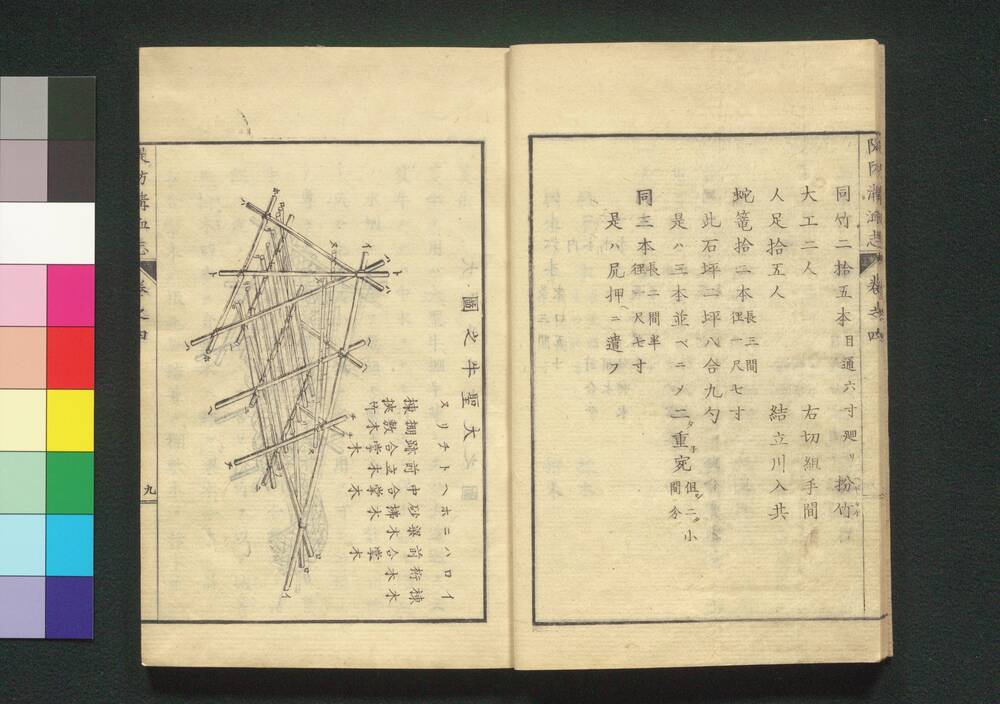 隄防溝洫志 卷之四
同竹二拾五本 目通六寸廻リ 扮竹
大工二人 右切組手間
人足拾五人 結立川入共
蛇篭拾二本 長三間 徑一尺七寸
此石坪二坪八合九勺
是ハ三本並ベニノ二重宛 但二ツ小間分
同三本 長二間半 徑一尺七寸
是ハ尻押ヘニ遣フ
大聖牛之圖
イ 棟木
ロ 桁木
ハ 前合掌木
ニ 梁木
ホ 砂拂木
ヘ 中合掌木
ト 前立木
チ 跡合掌木
リ 棚敷木
ヌ 棟挾竹
堤防溝洫志 卷之四 九